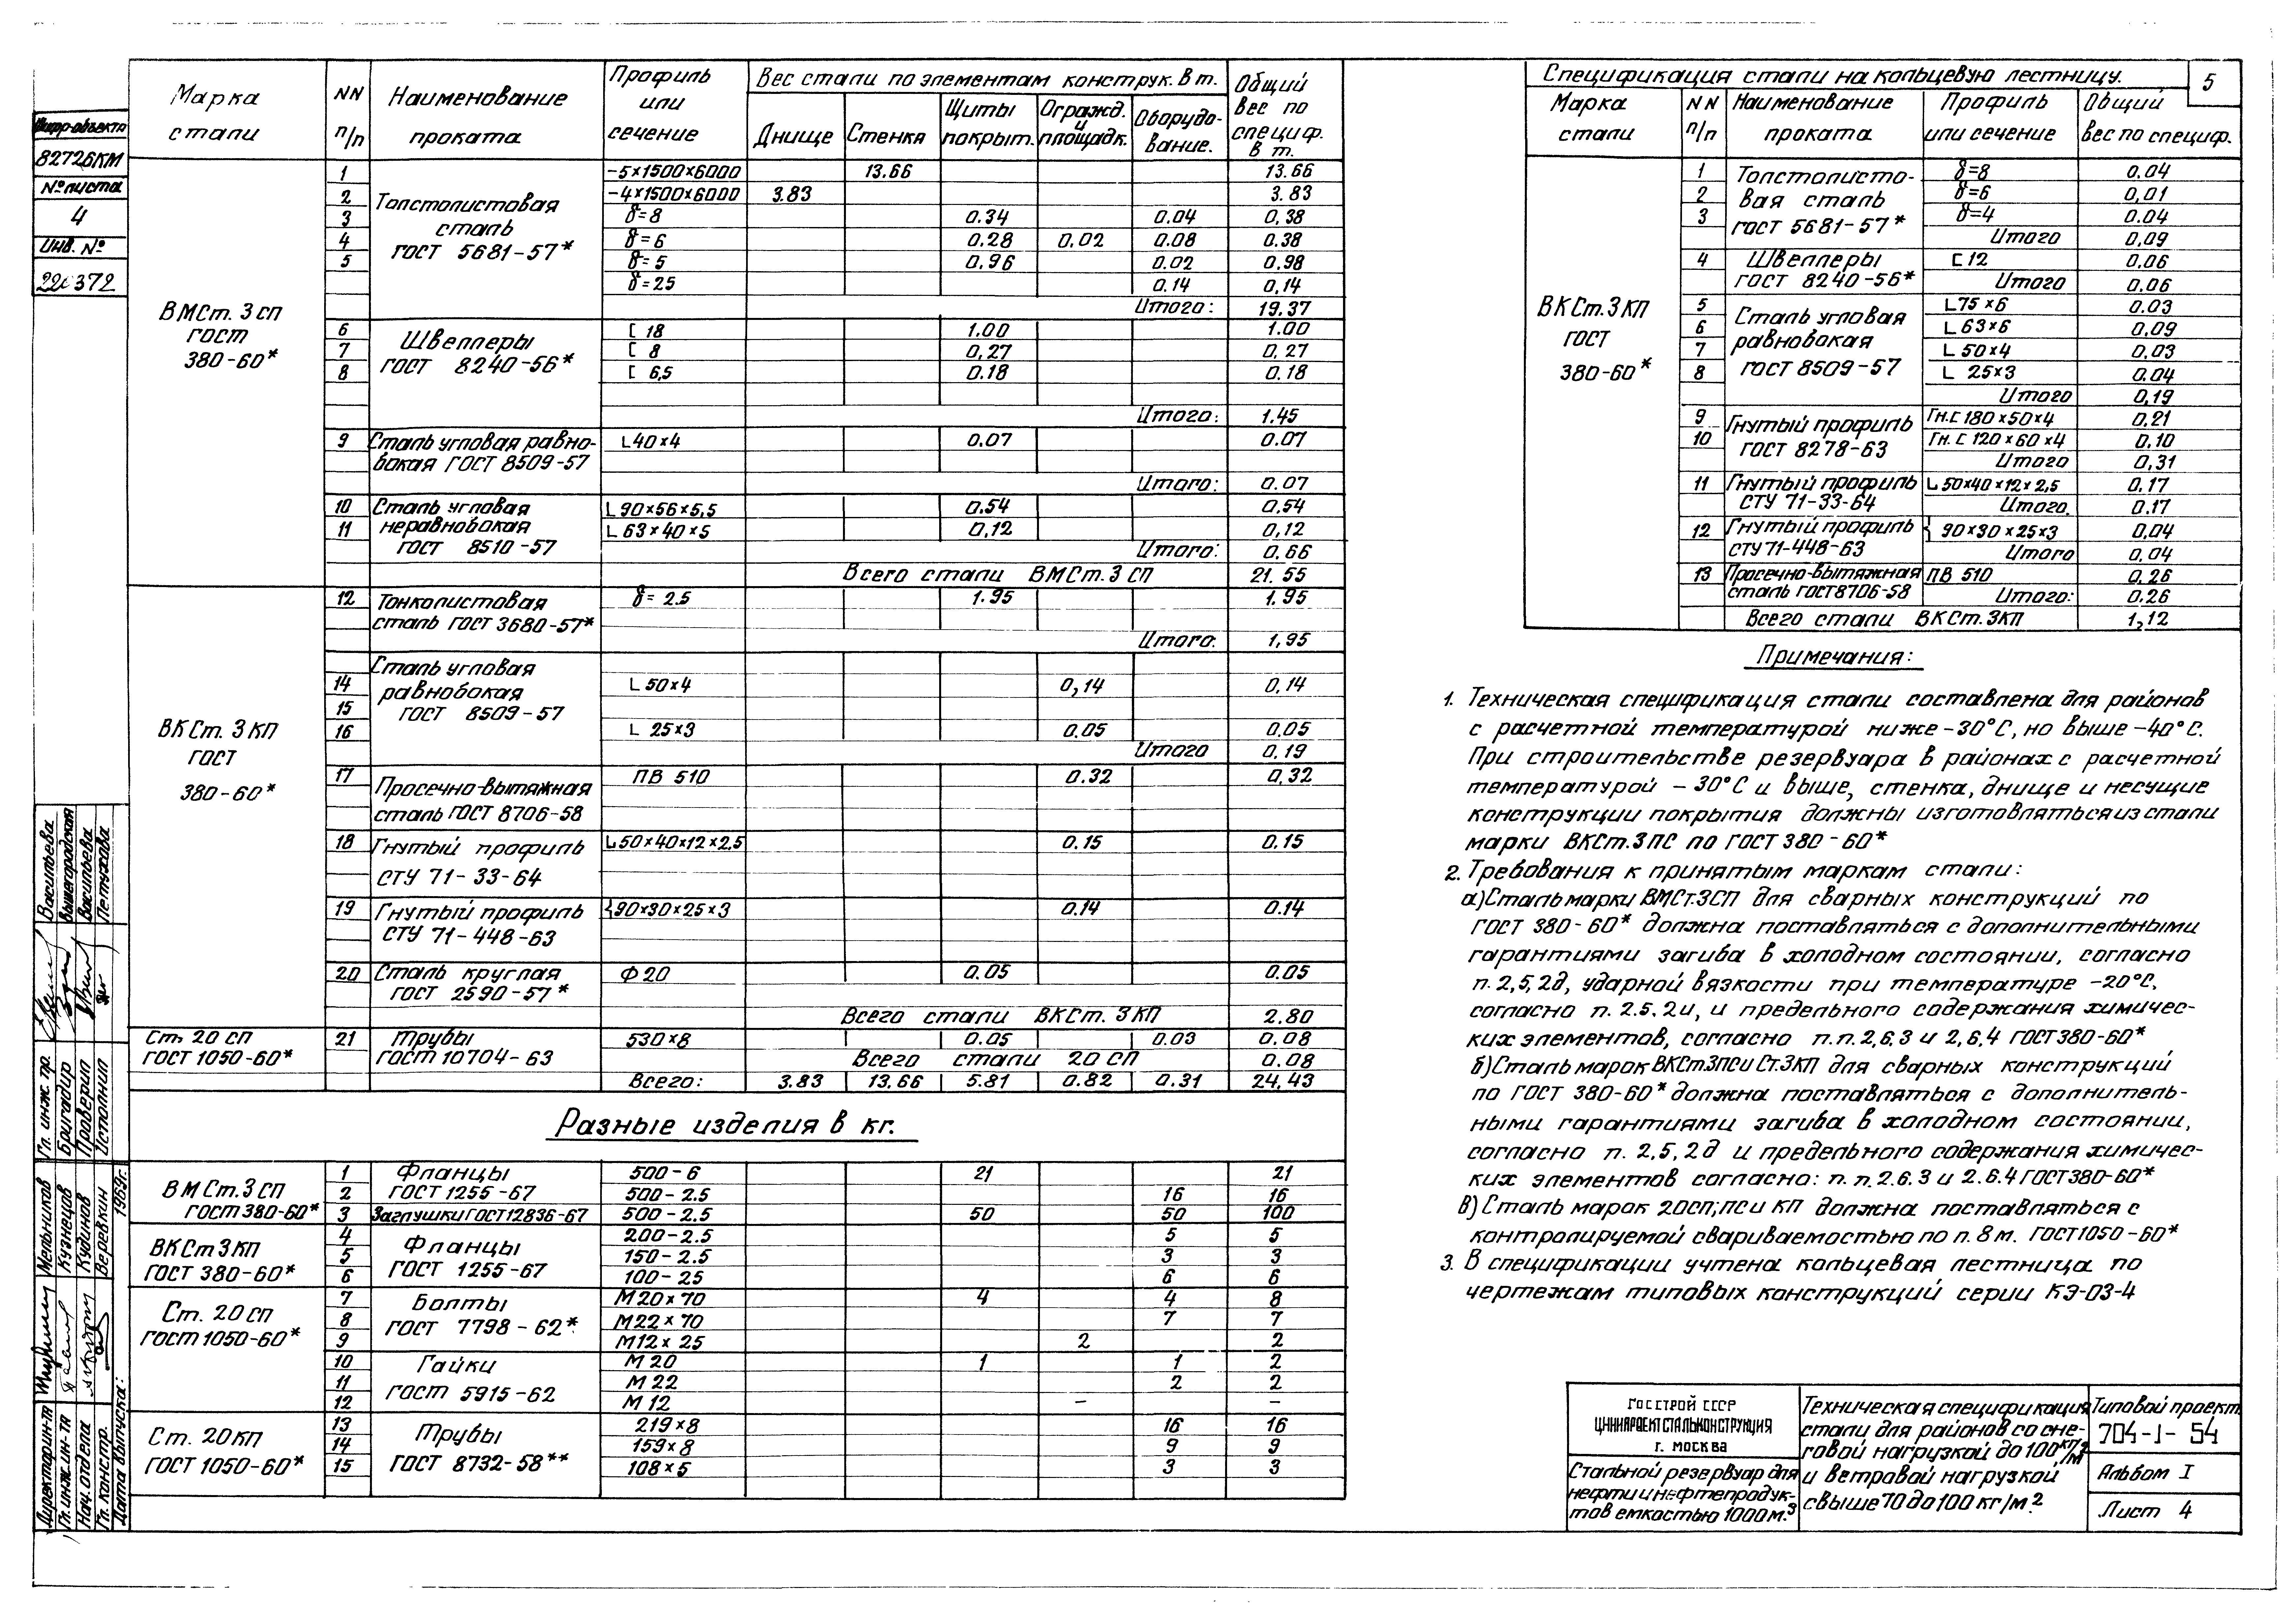 Шифр объекта
82726КМ
№ листа
4
Инв. №
Марка стали | NN п/п | Наименование проката | Профиль или сечение | Вес стали по элементам конструк. в т. | Общий вес по специф. в т.
Днище | Стенка | Щиты покрыт. | Огражд. и площадк. | Оборудование.
ВМСт. 3 сп ГОСТ 380-60*
Толстолистовая сталь ГОСТ 5681-57*
1 | -5×1500×6000 | 13.66 | 13.66
2 | -4×1500×6000 | 3.83 | 3.83
3 | δ=8 | 0.34 | 0.04 | 0,38
4 | δ=6 | 0.28 | 0,02 | 0.08 | 0.38
5 | δ=5 | 0,96 | 0.02 | 0,98
δ=25 | 0.14 | 0,14
Итого: 19.37
Швеллеры ГОСТ 8240-56*
6 | [ 18 | 1.00 | 1.00
7 | [ 8 | 0,27 | 0,27
8 | [ 6,5 | 0.18 | 0.18
Итого: 1.45
9 | Сталь угловая равнобокая ГОСТ 8509-57 | L40×4 | 0.07 | 0.07
Итого: 0.07
Сталь угловая неравнобокая ГОСТ 8510-57
10 | L 90×56×5,5 | 0.54 | 0,54
11 | L 63×40×5 | 0,12 | 0,12
Итого: 0,66
Всего стали ВМСт. 3 сп 21.55
ВКСт. 3 КП ГОСТ 380-60*
12 | Тонколистовая сталь ГОСТ 3680-57* | δ= 2.5 | 1.95 | 1.95
Итого: 1,95
Сталь угловая равнобокая ГОСТ 8509-57
14 | L 50×4 | 0,14 | 0,14
15
16 | L 25×3 | 0.05 | 0,05
Итого 0,19
17 | Просечно-вытяжная сталь ГОСТ 8706-58 | ПВ 510 | 0.32 | 0,32
18 | Гнутый профиль СТУ 71-33-64 | L50×40×12×2,5 | 0.15 | 0,15
19 | Гнутый профиль СТУ 71-448-63 | {90×30×25×3 | 0.14 | 0.14
20 | Сталь круглая ГОСТ 2590-57* | Ф 20 | 0.05 | 0.05
Всего стали ВКСт. 3 КП 2.80
Ст. 20 сп ГОСТ 1050-60* | 21 | Трубы ГОСТ 10704-63 | 530×8 | 0.05 | 0.03 | 0.08
Всего стали 20 сп 0.08
Всего: 3.83 | 13.66 | 5.81 | 0.82 | 0.31 | 24,43
Разные изделия в кг.
ВМСт. 3 сп ГОСТ 380-60*
1 | Фланцы | 500-6 | 21 | 21
2 | ГОСТ 1255-67 | 500-2.5 | 16 | 16
3 | Заглушки ГОСТ 12836-67 | 500-2.5 | 50 | 50 | 100
ВКСт 3 КП ГОСТ 380-60*
Фланцы ГОСТ 1255-67
4 | 200-2.5 | 5 | 5
5 | 150-2.5 | 3 | 3
6 | 100-25 | 6 | 6
Ст. 20 сп ГОСТ 1050-60*
Болты ГОСТ 7798-62*
7 | М20×70 | 4 | 4 | 8
8 | М22×70 | 7 | 7
9 | М12×25 | 2 | 2
Гайки ГОСТ 5915-62
10 | М 20 | 1 | 1 | 2
11 | М 22 | 2 | 2
12 | М 12 | - | -
Ст. 20 КП ГОСТ 1050-60*
Трубы ГОСТ 8732-58**
13 | 219×8 | 16 | 16
14 | 159×8 | 9 | 9
15 | 108×5 | 3 | 3
Спецификация стали на кольцевую лестницу.
5
Марка стали | NN п/п | Наименование проката | Профиль или сечение | Общий вес по специф.
ВКСт. 3 КП ГОСТ 380-60*
Толстолистовая сталь ГОСТ 5681-57*
1 | δ=8 | 0.04
2 | δ=6 | 0,01
3 | δ=4 | 0.04
Итого 0,09
4 | Швеллеры ГОСТ 8240-56* | [ 12 | 0.06
Итого 0.06
Сталь угловая равнобокая ГОСТ 8509-57
5 | L75×6 | 0.03
6 | L63×6 | 0,09
7 | L 50×4 | 0,03
8 | L 25×3 | 0.04
Итого 0,19
Гнутый профиль ГОСТ 8278-63
9 | Гн.[ 180×50×4 | 0.21
10 | Гн. [ 120×60×4 | 0,10
Итого 0,31
11 | Гнутый профиль СТУ 71-33-64 | L 50×40×12×2,5 | 0.17
Итого. 0.17
12 | Гнутый профиль СТУ 71-448-63 | { 90×30×25×3 | 0,04
Итого 0,04
13 | Просечно-вытяжная сталь ГОСТ 8706-58 | ПВ 510 | 0,26
Итого: 0.26
Всего стали ВКСт. 3КП 1,12
Примечания:
1. Техническая спецификация стали составлена для районов
с расчетной температурой ниже -30°С, но выше -40°С.
При строительстве резервуара в районах с расчетной
температурой - 30°С и выше, стенка, днище и несущие
конструкции покрытия должны изготовляться из стали
марки ВКСт.3ПС по ГОСТ 380-60*
2. Требования к принятым маркам стали:
а) Сталь марки ВМСт.3СП для сварных конструкций по
ГОСТ 380-60* должна поставляться с дополнительными
гарантиями загиба в холодном состоянии, согласно
п. 2,5,2д, ударной вязкости при температуре -20°С,
согласно п. 2.5.2и, и предельного содержания химичес-
ких элементов, согласно п.п. 2,6,3 и 2,6,4 ГОСТ 380-60*
б) Сталь марок ВКСт3ПС и Ст.3КП для сварных конструкций
по ГОСТ 380-60* должна поставляться с дополнитель-
ными гарантиями загиба в холодном состоянии,
согласно п. 2,5,2д и предельного содержания химичес-
ких элементов согласно: п.п. 2.6.3 и 2.6.4 ГОСТ 380-60*
в) Сталь марок 20сп; пс и кп должна поставляться с
контролируемой свариваемостью по п. 8м. ГОСТ 1050-60*
3. В спецификации учтена кольцевая лестница по
чертежам типовых конструкций серии КЭ-03-4
Госстрой СССР
ЦНИИПРОЕКТСТАЛЬКОНСТРУКЦИЯ
г. Москва
Стальной резервуар для
нефти и нефтепродук-
тов емкостью 1000 м.³
Техническая спецификация
стали для районов со сне-
говой нагрузкой до 100 кг/м²
и ветровой нагрузкой
свыше 70 до 100 кг/м²
Типовой проект
704-1-54
Альбом I
Лист 4
Гл. инж. пр. Васильева
Бригадир Вышегородская
Проверил Васильева
Исполнил Петухова
Директор ин-та Мельников
Гл. инж. ин-та Кузнецов
Нач. отдела Кудинов
Гл. констр. Веревкин
Дата выпуска: 1969г.